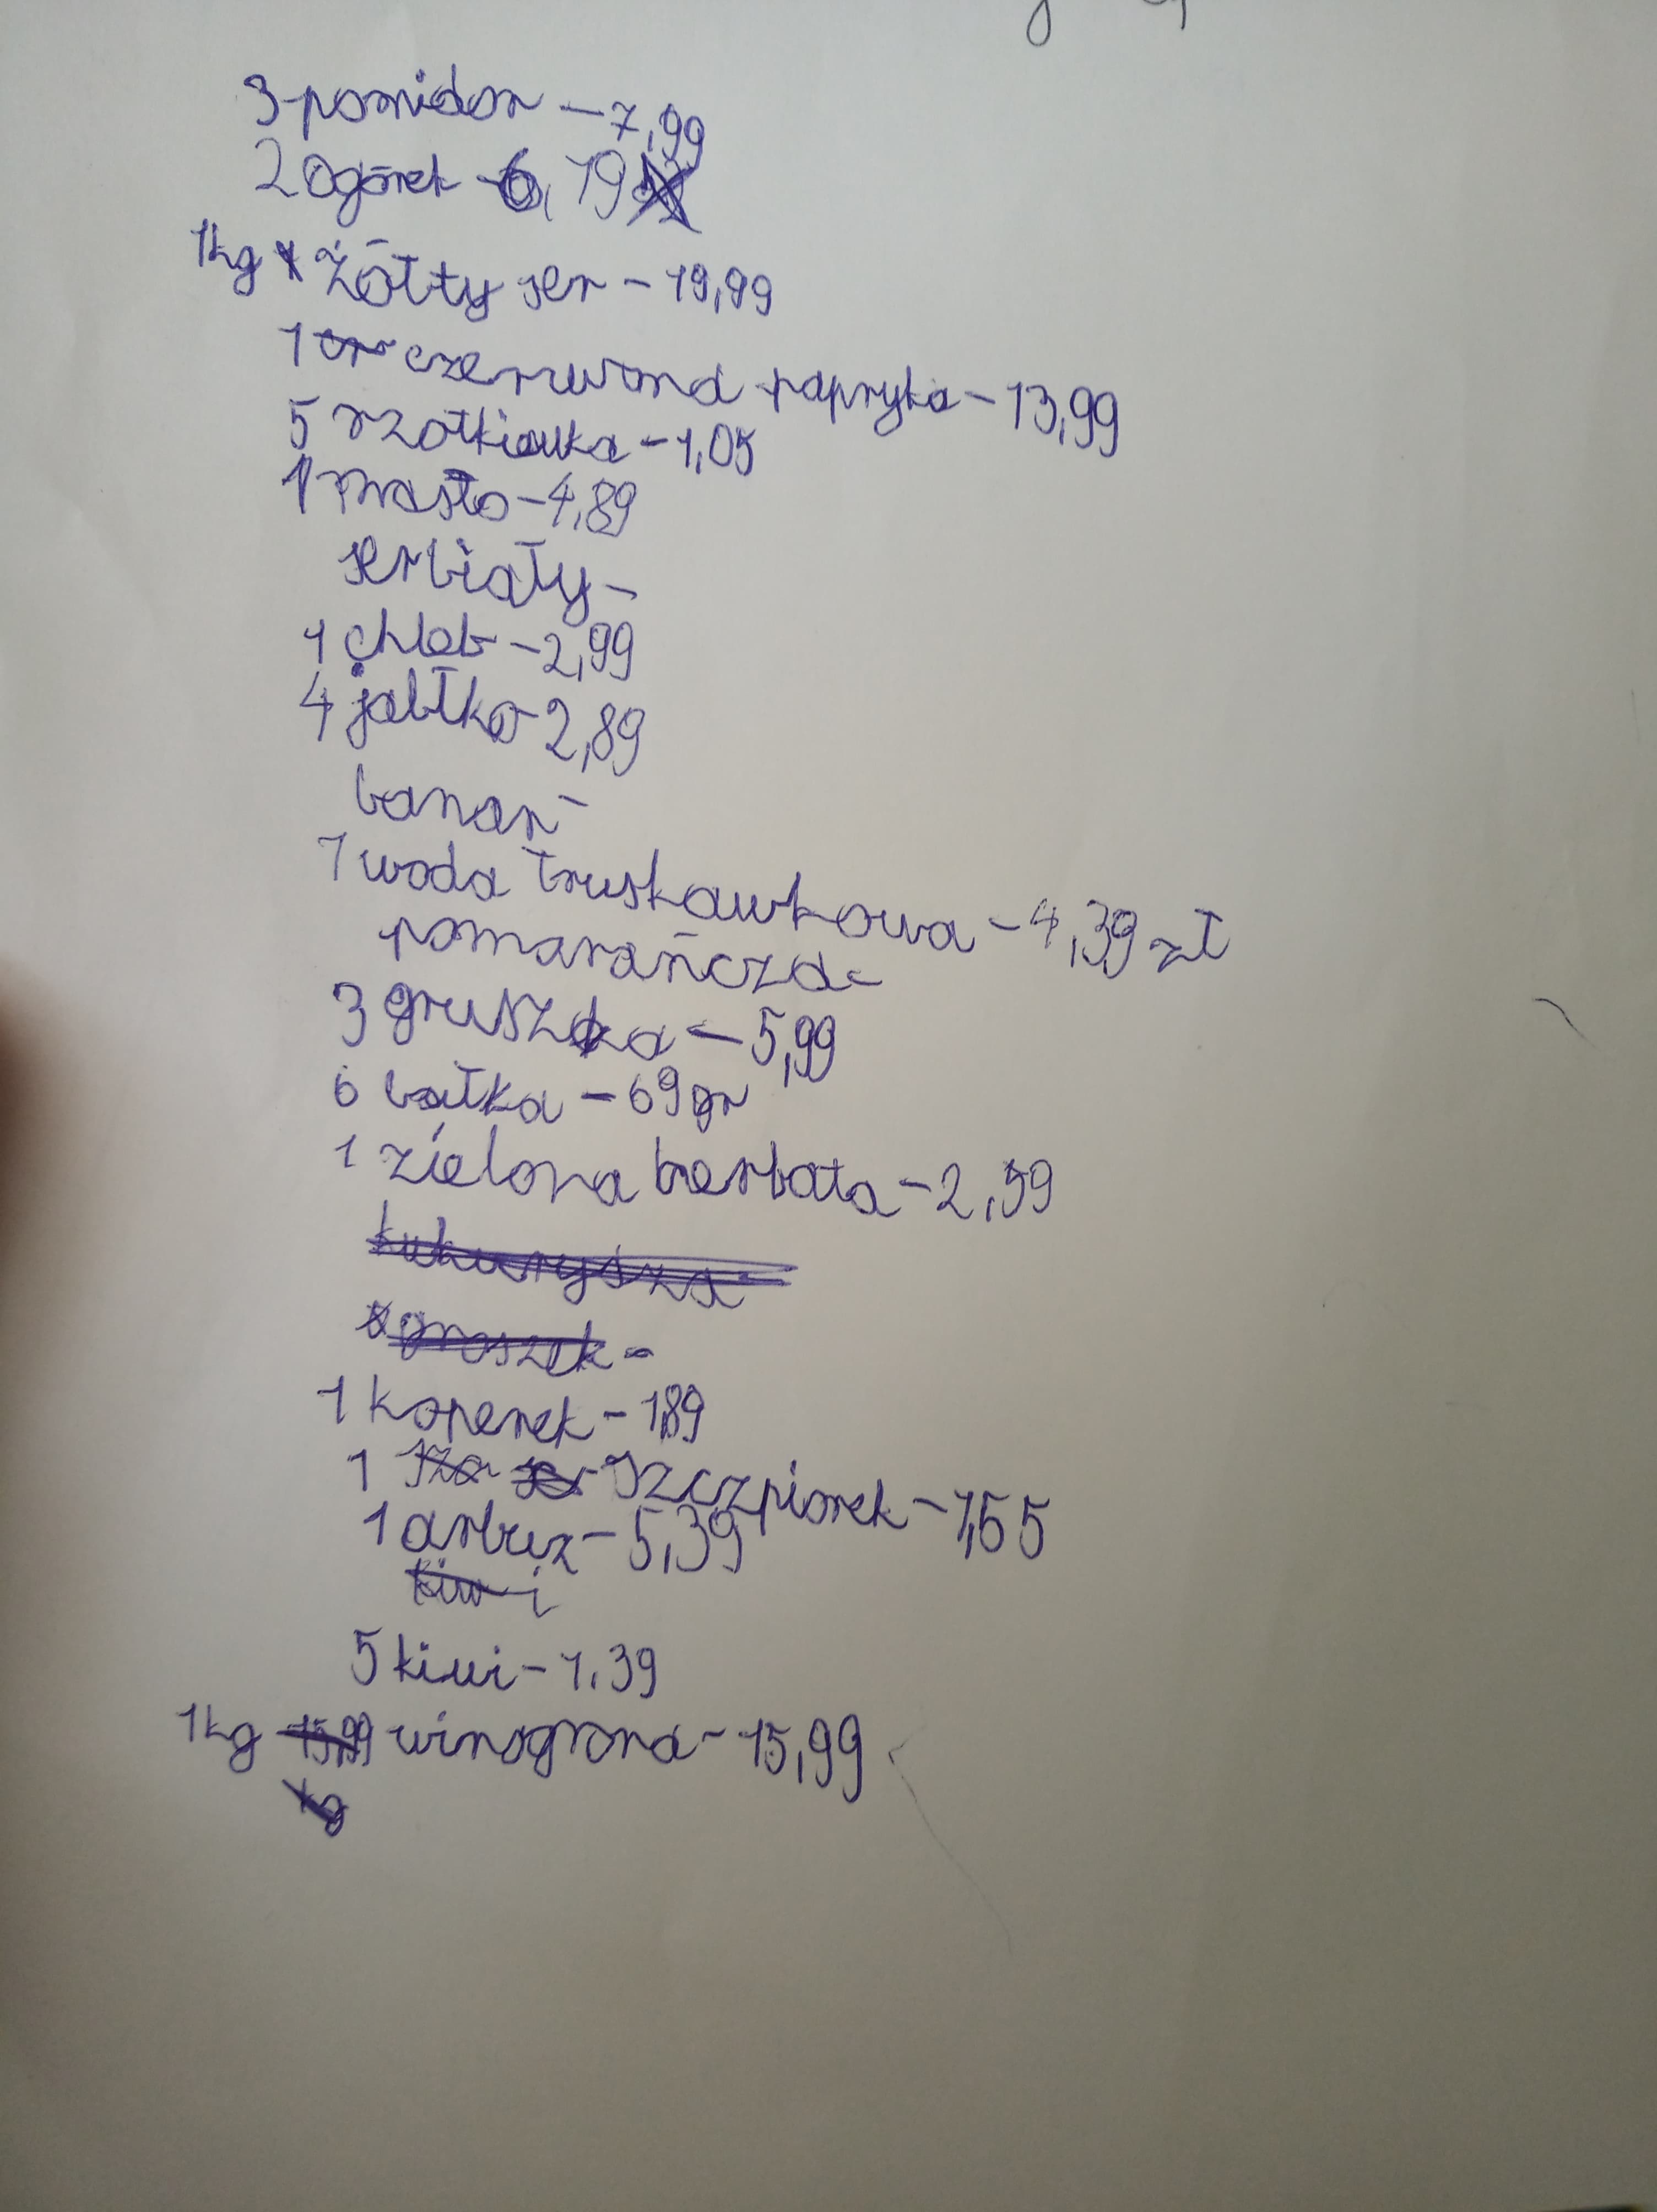 3 pomidor - 7,99
2 Ogórek - 6,19
1kg żółty ser - 19,99
1 czerwona papryka - 13,99
5 rzotkiewka - 1,05
1 masło - 4,89
ser biały -
1 chleb - 2,99
4 jabłko - 2,89
banan -
1 woda truskawkowa - 4,39 zł
pomarańcza -
3 gruszka - 5,99
6 bułka - 69 gr
1 zielona herbata - 2,59
kukurysza -
groszek -
1 koperek - 1,89
1 Szczpiorek - 1,55
1 arbuz - 5,39
kiwi
5 kiwi - 1,39
1kg 15,99 winogrona - 15,99
kg